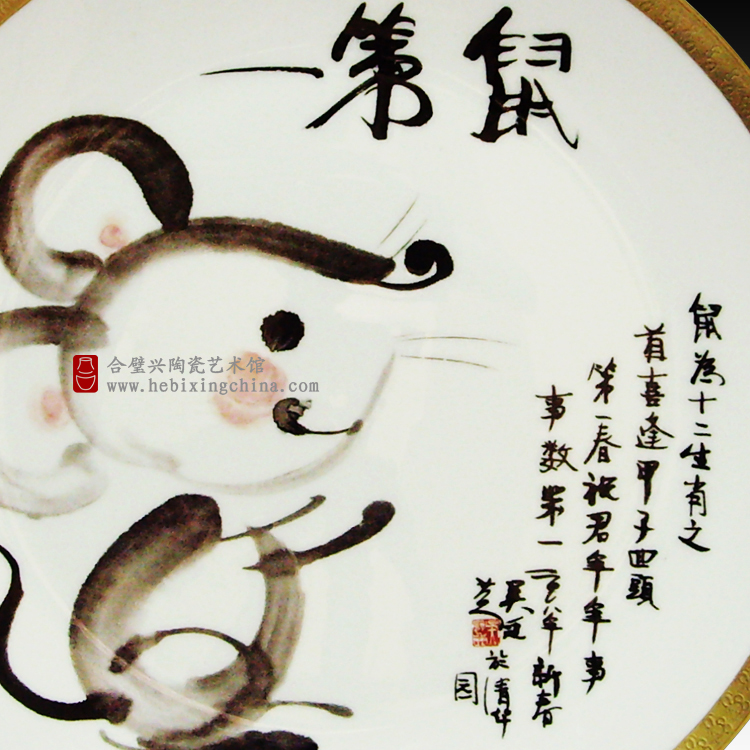 鼠第一
鼠為十二生肖之
首喜逢甲子回頭
第一春祝君年年事
事数第一
零八年新春
吴冠於清华园
合璧兴陶瓷艺术馆
www.hebixingchina.com